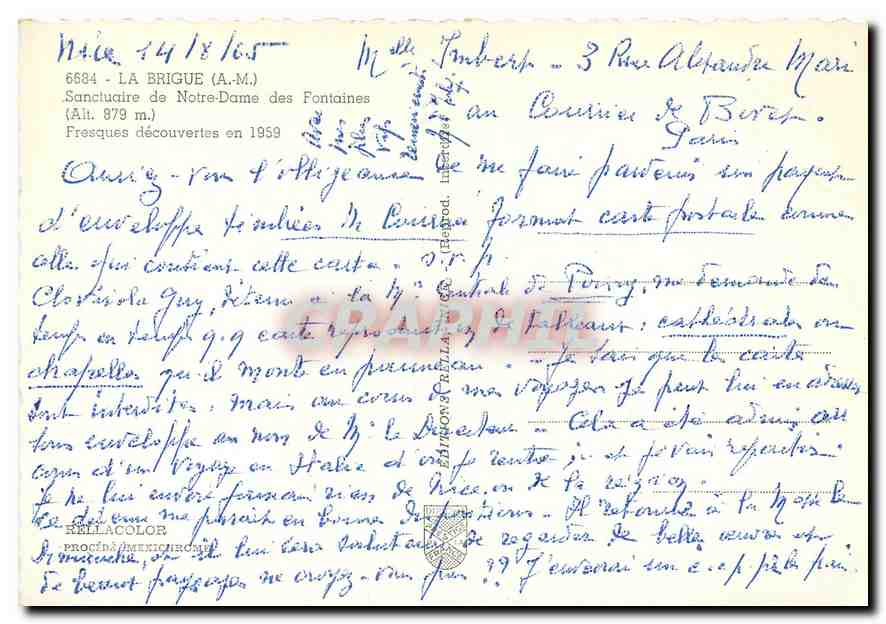 Nice 14/8/65 Mlle Imbert - 3 Rue Alexandre Mari
6684 - LA BRIGUE (A.-M.)
Sanctuaire de Notre-Dame des Fontaines
(Alt. 879 m.)
Fresques découvertes en 1959
au Courrier de
Paris
Avec
mes
plus
vifs
remerciements
EDITIONS "RELLA", NICE - (Reprod. Interdite)
- vous l'obligeance de me faire parvenir un paquet
d'enveloppe timbrées de format carte postale comme
celle qui contient cette carte. s.v.p.
Guy, détenu à la Mon Centrale de Poissy, me demande de
temps en temps q.q carte reproduction de tableaux : cathédrales ou
chapelles qu'il monte en panneau. - Je sais que les carte
sont interdites : mais au cours de mes voyages je peux lui en adresser
sous enveloppe au nom de Mr le Directeur - Cela a été admis au
cours d'un voyage en Italie d'où je rentre ; et je vais repartir.
Je ne lui envoie de Nice ou de la région.
Ce détenu me parait en bonnes dispositions. Il retourne à la Messe le
RELLACOLOR
PROCÉDÉ MEXICHROME
Dimanche, de regarder de belles œuvres et
de beaux paysages ne croyez-vous pas ?? J'enverrai un c.c.p.
CPARHI